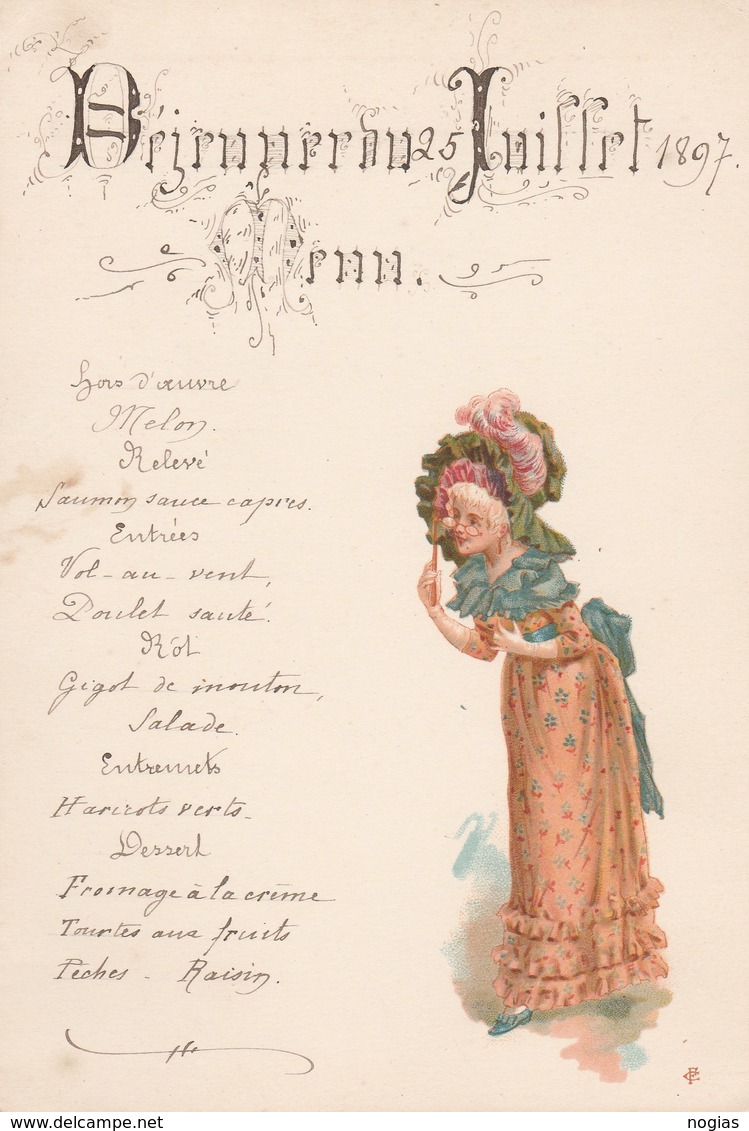 Déjeuner du 25 Juillet 1897.
Menu.
Hors d'œuvre
Melon.
Relevé
Saumon sauce capres.
Entrées
Vol-au-vent,
Poulet sauté.
Rôt
Gigot de mouton,
Salade.
Entremets
Haricots verts.
Dessert
Fromage à la crême
Tourtes aux fruits
Pêches - Raisin.
www.delcampe.net
nogias